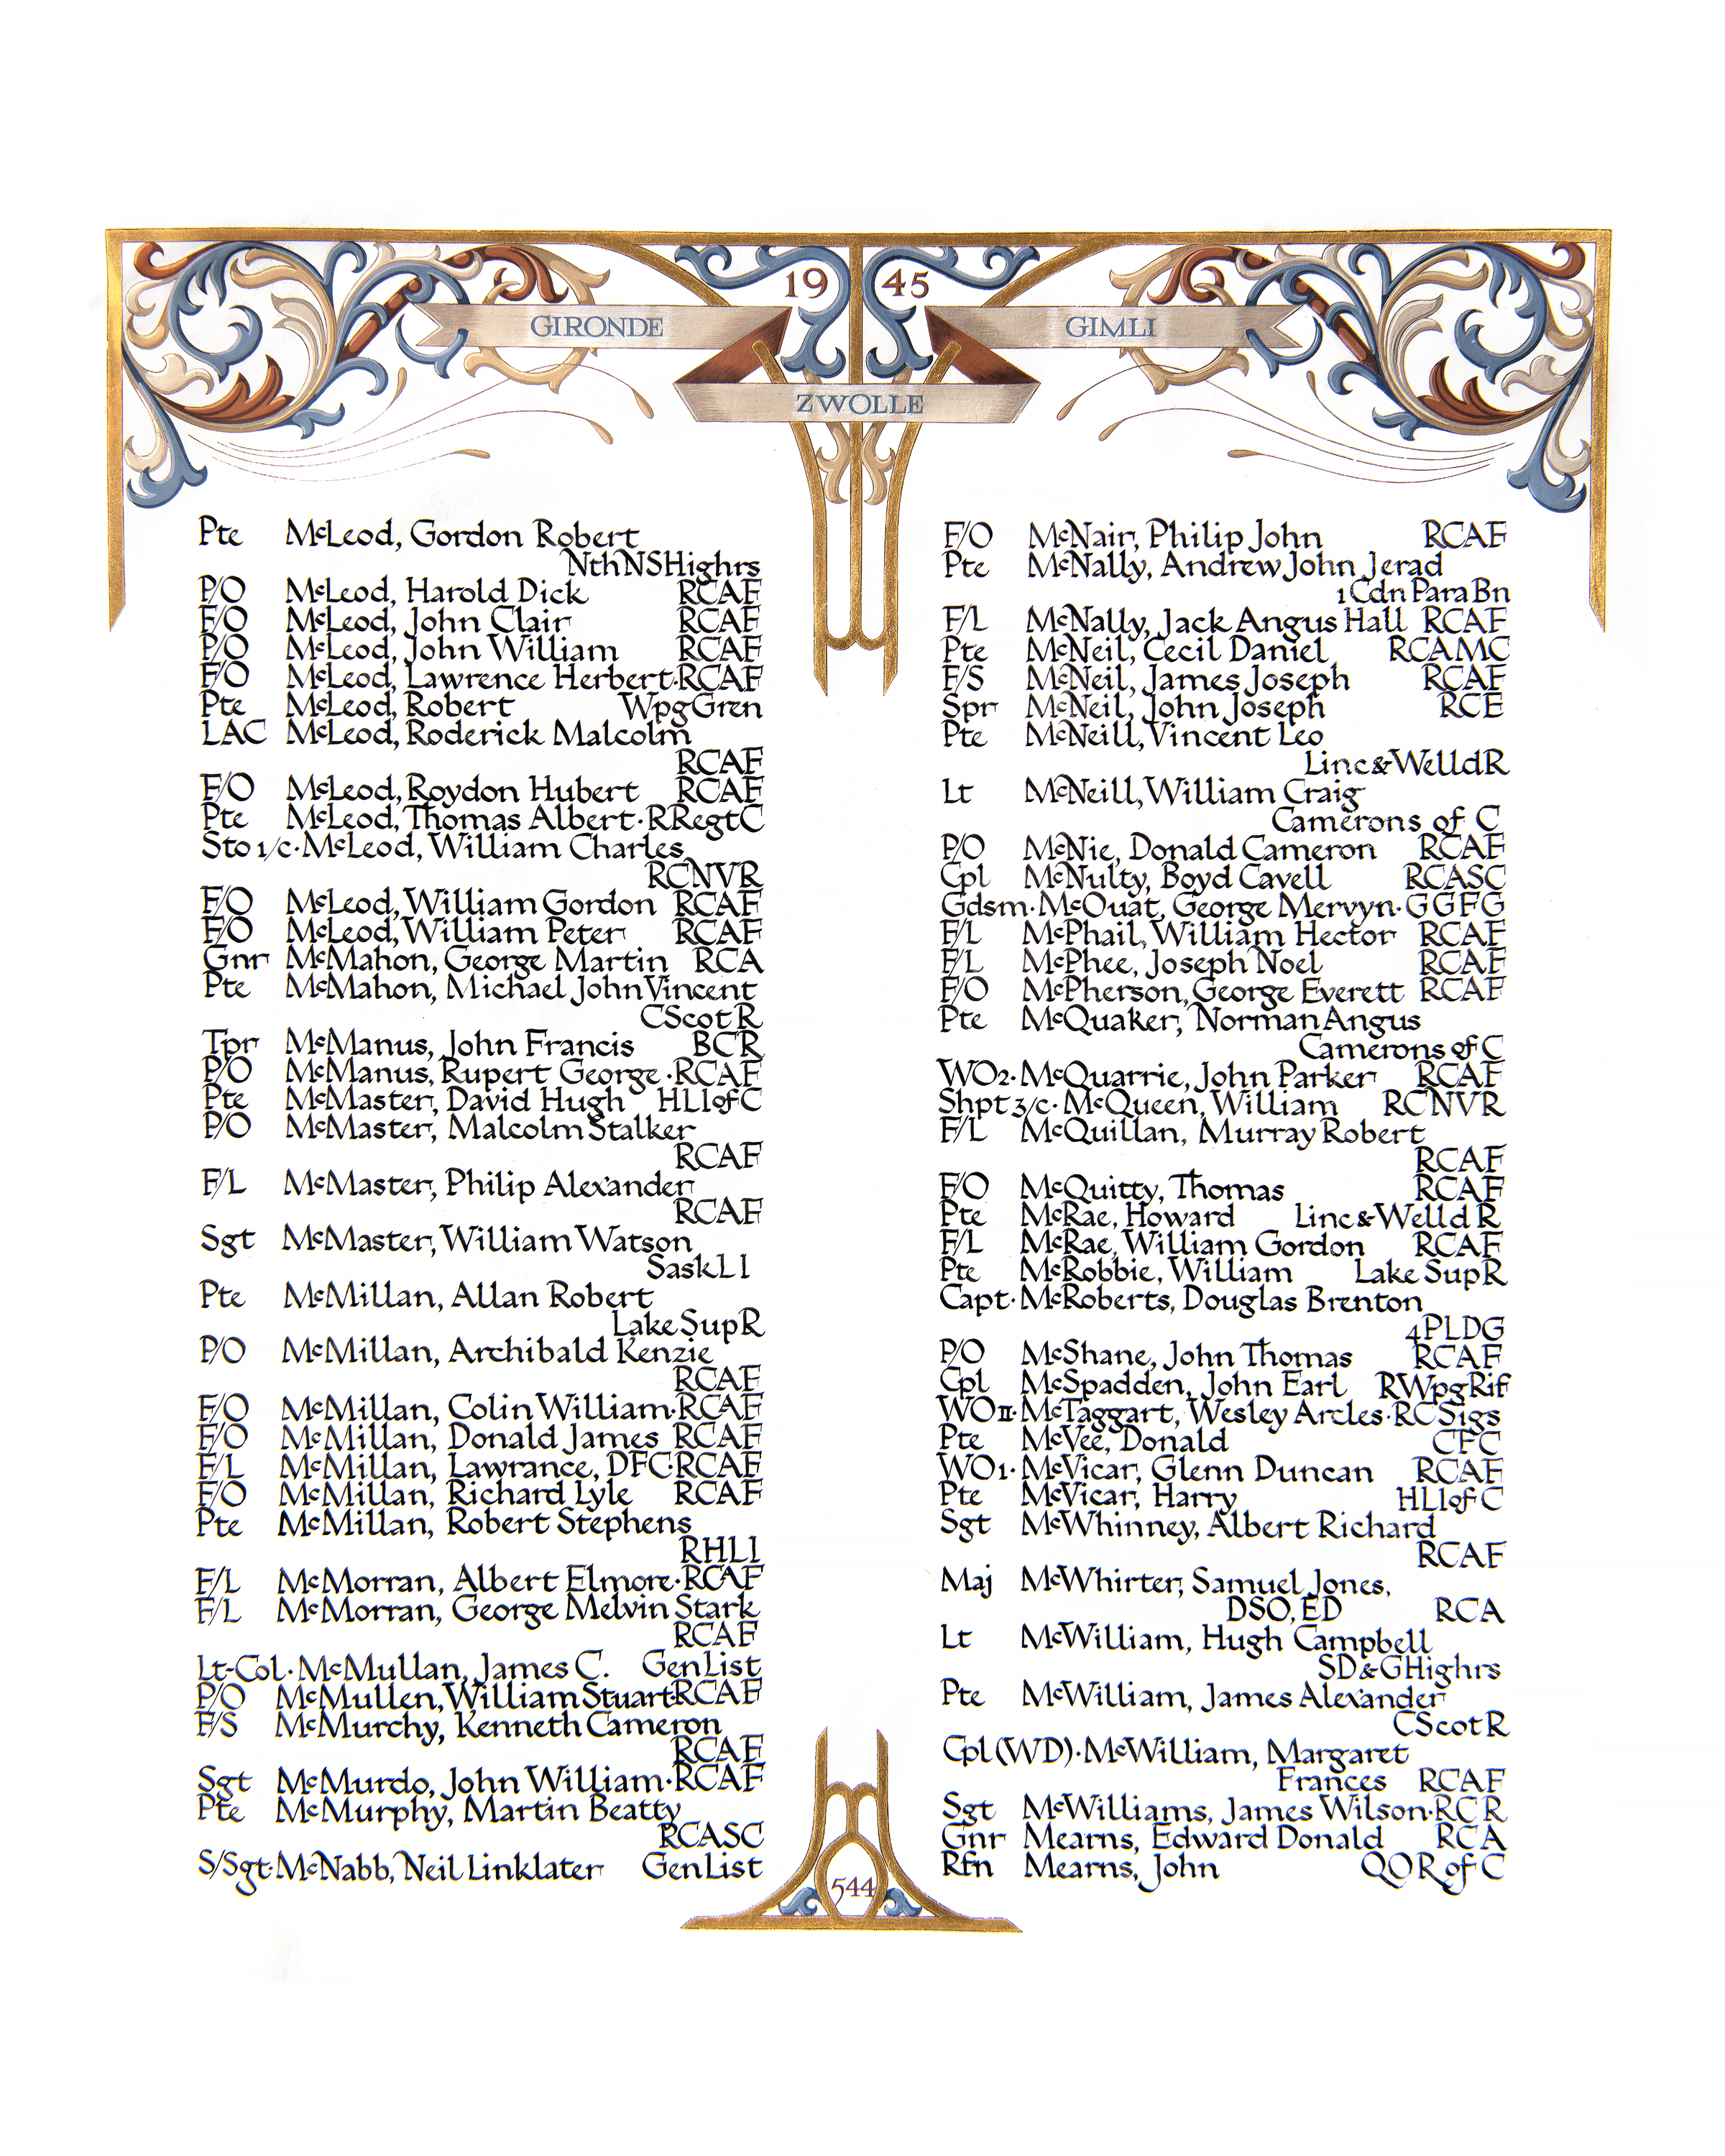 19 45
GIRONDE
GIMLI
ZWOLLE
Pte McLeod, Gordon Robert
NthNSHighrs
P/O McLeod, Harold Dick RCAF
F/O McLeod, John Clair RCAF
P/O McLeod, John William RCAF
F/O McLeod, Lawrence Herbert·RCAF
Pte McLeod, Robert WpgGren
LAC McLeod, Roderick Malcolm
RCAF
F/O McLeod, Roydon Hubert RCAF
Pte McLeod, Thomas Albert·RRegtC
Sto 1/c·McLeod, William Charles
RCNVR
F/O McLeod, William Gordon RCAF
F/O McLeod, William Peter RCAF
Gnr McMahon, George Martin RCA
Pte McMahon, Michael John Vincent
CScotR
Tpr McManus, John Francis BCR
P/O McManus, Rupert George·RCAF
Pte McMaster, David Hugh HLIofC
P/O McMaster, Malcolm Stalker
RCAF
F/L McMaster, Philip Alexander
RCAF
Sgt McMaster, William Watson
SaskLI
Pte McMillan, Allan Robert
Lake SupR
P/O McMillan, Archibald Kenzie
RCAF
F/O McMillan, Colin William·RCAF
F/O McMillan, Donald James RCAF
F/L McMillan, Lawrance, DFC·RCAF
F/O McMillan, Richard Lyle RCAF
Pte McMillan, Robert Stephens
RHLI
F/L McMorran, Albert Elmore·RCAF
F/L McMorran, George Melvin Stark
RCAF
Lt-Col·McMullan, James C. GenList
P/O McMullen, William Stuart·RCAF
F/S McMurchy, Kenneth Cameron
RCAF
Sgt McMurdo, John William·RCAF
Pte McMurphy, Martin Beatty
RCASC
S/Sgt·McNabb, Neil Linklater GenList
F/O McNair, Philip John RCAF
Pte McNally, Andrew John Jerad
1 Cdn Para Bn
F/L McNally, Jack Angus Hall RCAF
Pte McNeil, Cecil Daniel RCAMC
F/S McNeil, James Joseph RCAF
Spr McNeil, John Joseph RCE
Pte McNeill, Vincent Leo
Linc&WelldR
Lt McNeill, William Craig
Camerons of C
P/O McNie, Donald Cameron RCAF
Cpl McNulty, Boyd Cavell RCASC
Gdsm·McOuat, George Mervyn·GGFG
F/L McPhail, William Hector RCAF
F/L McPhee, Joseph Noel RCAF
F/O McPherson, George Everett RCAF
Pte McQuaker, Norman Angus
Camerons of C
WO2·McQuarrie, John Parker RCAF
Shpt 3/c·McQueen, William RCNVR
F/L McQuillan, Murray Robert
RCAF
F/O McQuitty, Thomas RCAF
Pte McRae, Howard Linc&Welld R
F/L McRae, William Gordon RCAF
Pte McRobbie, William Lake SupR
Capt·McRoberts, Douglas Brenton
4PLDG
P/O McShane, John Thomas RCAF
Cpl McSpadden, John Earl RWpgRif
WOII·McTaggart, Wesley Arcles·RCSigs
Pte McVee, Donald CFC
WO1·McVicar, Glenn Duncan RCAF
Pte McVicar, Harry HLIofC
Sgt McWhinney, Albert Richard
RCAF
Maj McWhirter, Samuel Jones,
DSO, ED RCA
Lt McWilliam, Hugh Campbell
SD&GHighrs
Pte McWilliam, James Alexander
CScotR
Cpl(WD)·McWilliam, Margaret
Frances RCAF
Sgt McWilliams, James Wilson·RCR
Gnr Mearns, Edward Donald RCA
Rfn Mearns, John QOR of C
544